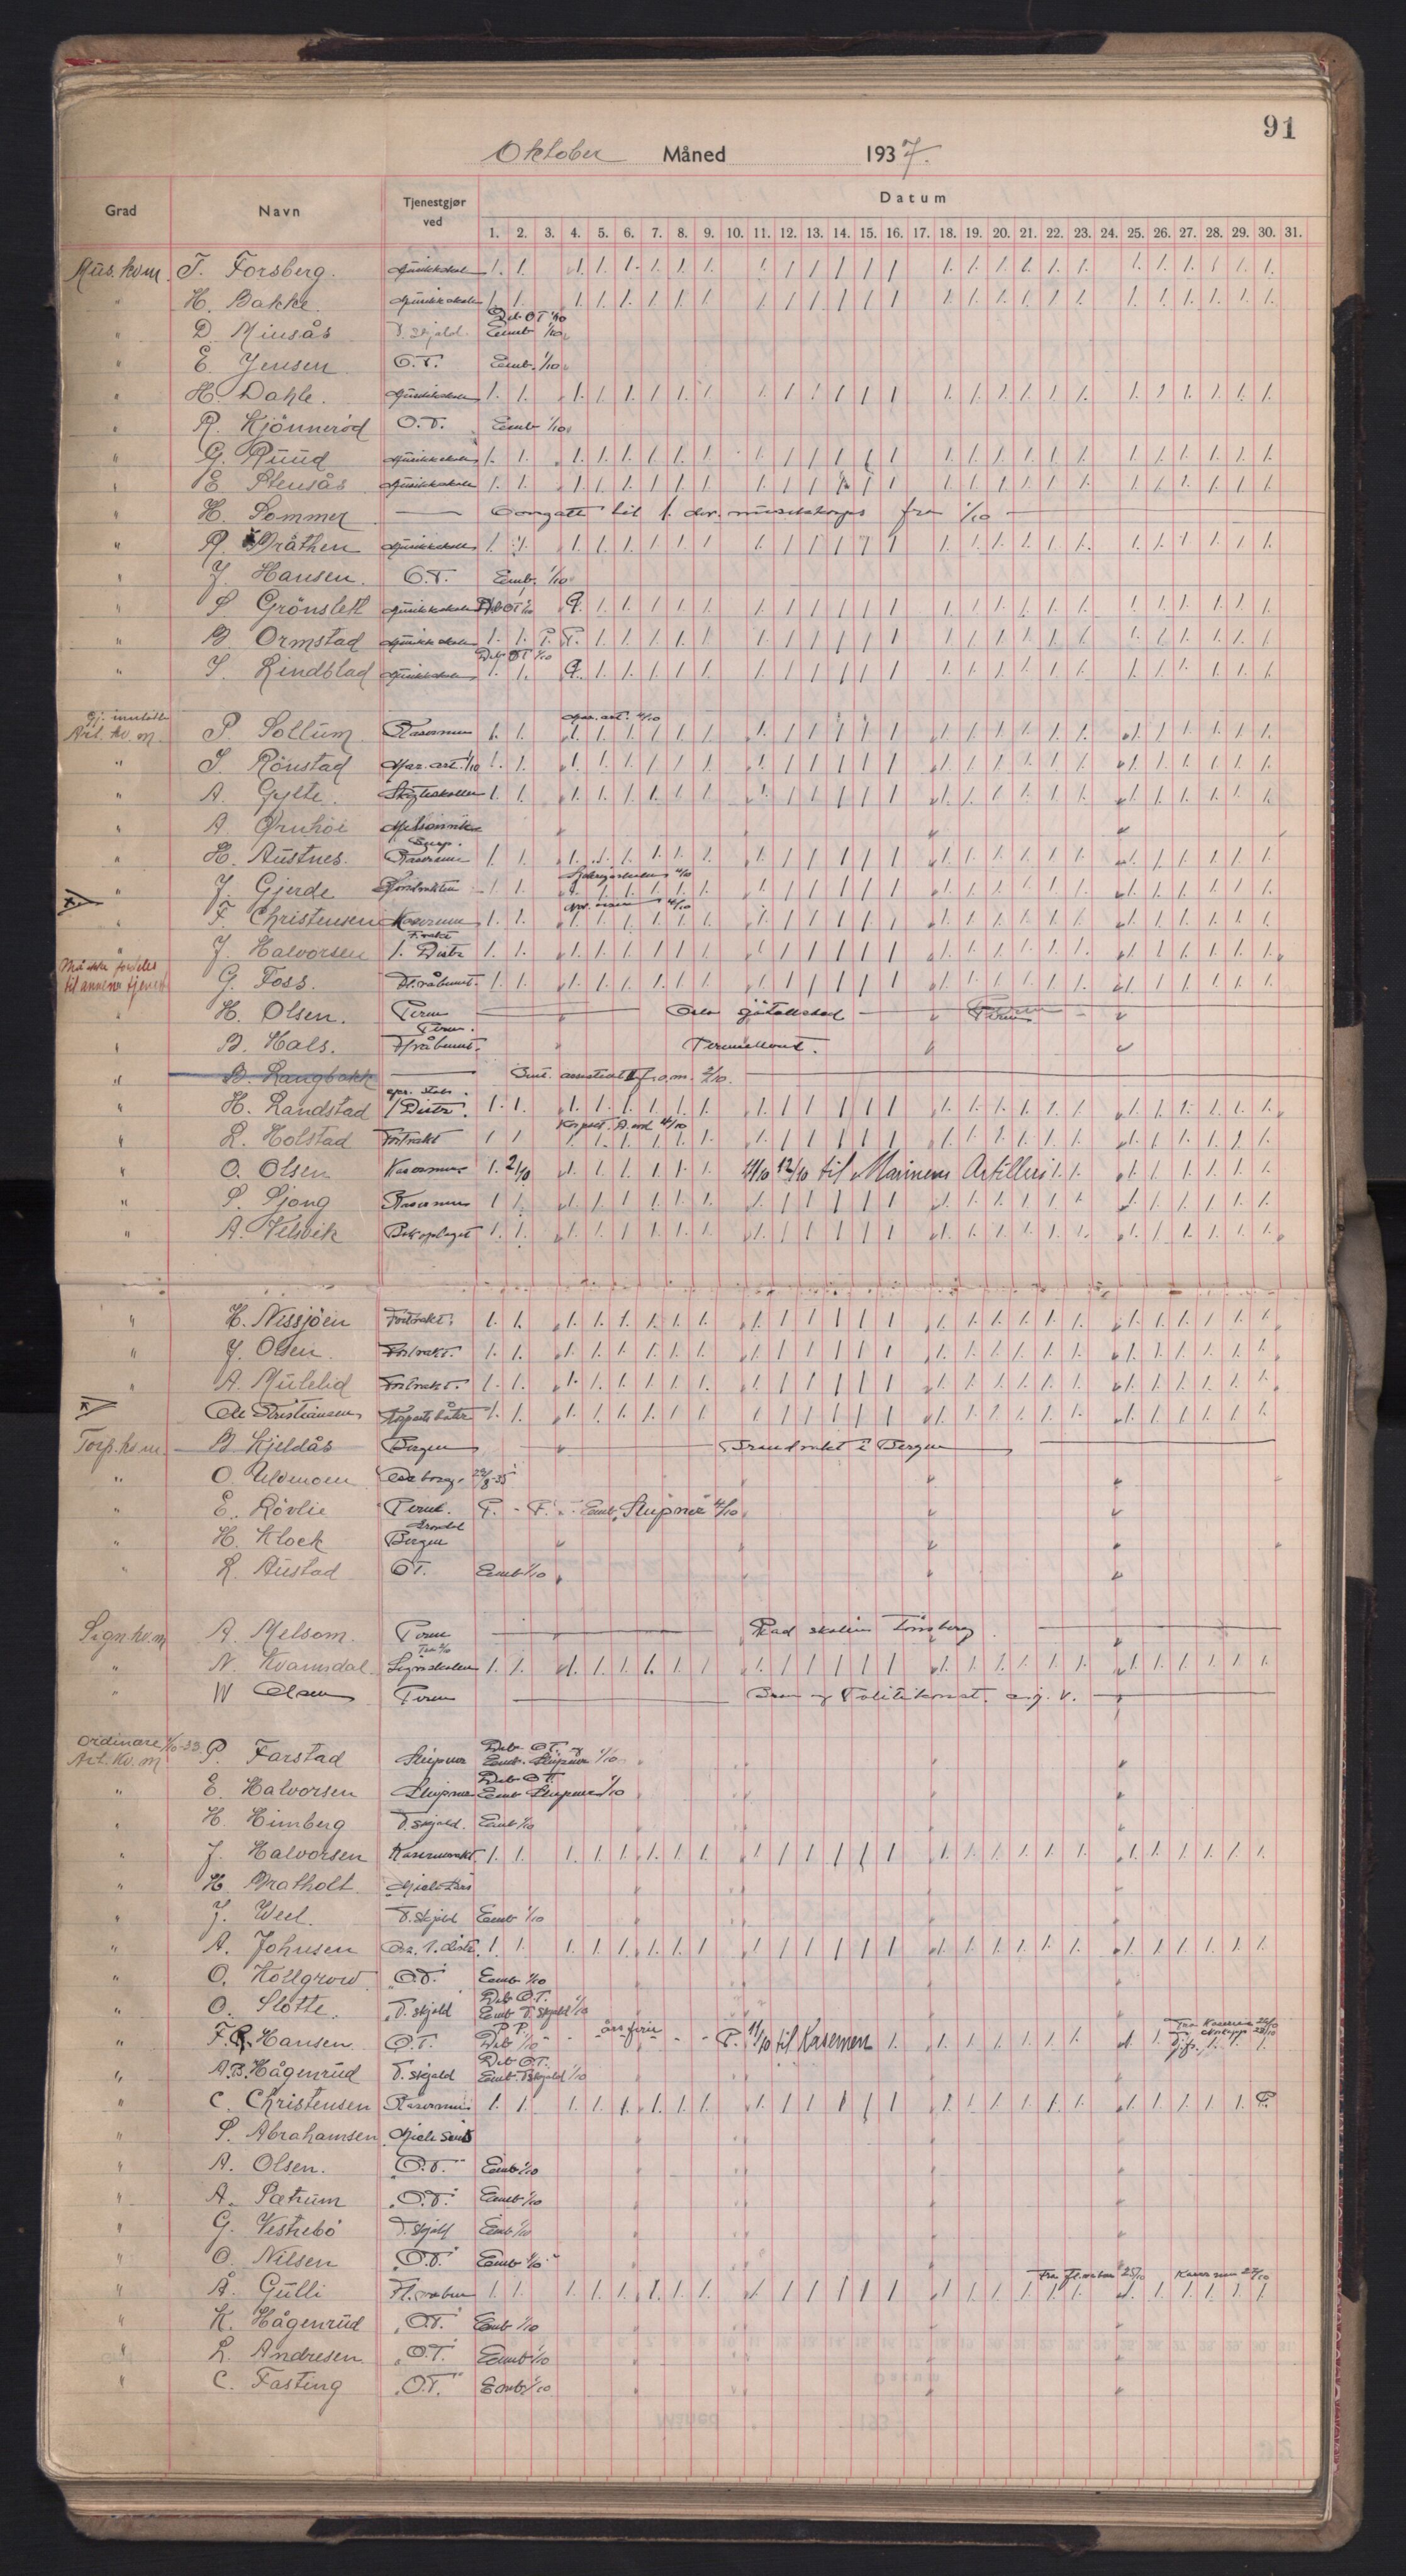 91
Oktober Måned 1937.
Grad Navn Tjenestgjør ved Datum
1. 2. 3. 4. 5. 6. 7. 8. 9. 10. 11. 12. 13. 14. 15. 16. 17. 18. 19. 20. 21. 22. 23. 24. 25. 26. 27. 28. 29. 30. 31.
Mus. kv.m. T. Forsberg. Musikkskolen 1. 1. 1. 1. 1. 1. 1. 1. 1. 1. 1. 1. 1. 1. 1. 1. 1. 1. 1. 1. 1. 1. 1. 1. 1. 1.
" H. Bakke. Musikkskolen 1. 1. 1. 1. 1. 1. 1. 1. 1. 1. 1. 1. 1. 1. 1. 1. 1. 1. 1. 1. 1. 1. 1. 1. 1. 1.
" D. Minsås T. Skjold. Deb. OT 1/10 Emb 1/10
" E. Jensen O.T. Emb. 1/10
" H. Dahle. Musikkskolen 1. 1. 1. 1. 1. 1. 1. 1. 1. 1. 1. 1. 1. 1. 1. 1. 1. 1. 1. 1. 1. 1. 1. 1. 1. 1.
" R. Kjönneröd O.T. Emb 1/10
" G. Ruud Musikkskolen 1. 1. 1. 1. 1. 1. 1. 1. 1. 1. 1. 1. 1. 1. 1. 1. 1. 1. 1. 1. 1. 1. 1. 1. 1. 1.
" E. Stensås Musikkskolen 1. 1. 1. 1. 1. 1. 1. 1. 1. 1. 1. 1. 1. 1. 1. 1. 1. 1. 1. 1. 1. 1. 1. 1. 1. 1.
" H. Sommer — Overgått til 1. div. musikkorps fra 1/10
" R. Bråthen Musikkskolen 1. 1. 1. 1. 1. 1. 1. 1. 1. 1. 1. 1. 1. 1. 1. 1. 1. 1. 1. 1. 1. 1. 1. 1. 1. 1.
" J. Hansen. O.T. Emb. 1/10
" S. Grönslett Musikkskolen Deb OT 1/10 P. 1. 1. 1. 1. 1. 1. 1. 1. 1. 1. 1. 1. 1. 1. 1. 1. 1. 1. 1. 1. 1. 1. 1.
" B. Ormstad Musikkskolen 1. 1. P. P. 1. 1. 1. 1. 1. 1. 1. 1. 1. 1. 1. 1. 1. 1. 1. 1. 1. 1. 1. 1. 1. 1. 1.
" S. Lindblad Musikkskolen Deb OT 1/10 1. 1. P. 1. 1. 1. 1. 1. 1. 1. 1. 1. 1. 1. 1. 1. 1. 1. 1. 1. 1. 1. 1. 1. 1. 1.
Art. kv. m. P. Sollum Kasernen 1. 1. Mar. art. 4/10 1. 1. 1. 1. 1. 1. 1. 1. 1. 1. 1. 1. 1. 1. 1. 1. 1. 1. 1. 1. 1. 1. 1. 1.
" S. Rönstad Mar. art. 1/10 1. 1. 1. 1. 1. 1. 1. 1. 1. 1. 1. 1. 1. 1. 1. 1. 1. 1. 1. 1. 1. 1. 1. 1. 1. 1.
" A. Gylte. 1. 1. 1. 1. 1. 1. 1. 1. 1. 1. 1. 1. 1. 1. 1. 1. 1. 1. 1. 1. 1. 1. 1. 1. 1. 1.
" A. Ørnhöi Melsomvik
" H. Austnes. Kasernen 1. 1. 1. 1. 1. 1. 1. 1. 1. 1. 1. 1. 1. 1. 1. 1. 1. 1. 1. 1. 1. 1. 1. 1. 1. 1.
" J. Gjerde Portvakten 1. 1. 4/10 1. 1. 1. 1. 1. 1. 1. 1. 1. 1. 1. 1. 1. 1. 1. 1. 1. 1. 1. 1. 1. 1. 1. 1.
" F. Christensen Kasernen 1. 1. 4/10 1. 1. 1. 1. 1. 1. 1. 1. 1. 1. 1. 1. 1. 1. 1. 1. 1. 1. 1. 1. 1. 1. 1. 1.
" J. Halvorsen 1. Distr 1. 1. 1. 1. 1. 1. 1. 1. 1. 1. 1. 1. 1. 1. 1. 1. 1. 1. 1. 1. 1. 1. 1. 1. 1. 1.
Må ikke fordeles til annen tjeneste G. Foss. Fl. våbnet. 1. 1. 1. 1. 1. 1. 1. 1. 1. 1. 1. 1. 1. 1. 1. 1. 1. 1. 1. 1. 1. 1. 1. 1. 1. 1.
" H. Olsen. Perm — Perm
" B. Hals. Perm. Fl. våbnet. Permittent.
" B. Langbakk — f.o.m. 2/10.
" H. Landstad 1 Distr. 1. 1. 1. 1. 1. 1. 1. 1. 1. 1. 1. 1. 1. 1. 1. 1. 1. 1. 1. 1. 1. 1. 1. 1. 1. 1.
" L. Holstad Portvakt 1 1 4/10 1. 1. 1. 1. 1. 1. 1. 1. 1. 1. 1. 1. 1. 1. 1. 1. 1. 1. 1. 1. 1. 1. 1. 1.
" O. Olsen Kasernen 1. 2/10 1. 1. 1. 1. 1. 1. 11/10 12/10 til Marinens Artilleri 1. 1. 1. 1. 1. 1. 1. 1.
" S. Sjong Kasernen 1 1. 1. 1. 1. 1. 1. 1. 1. 1. 1. 1. 1. 1. 1. 1. 1. 1. 1. 1. 1. 1. 1. 1. 1. 1.
" A. Velsvik 1. 1. 1. 1. 1. 1. 1. 1. 1. 1. 1. 1. 1. 1. 1. 1. 1. 1. 1. 1. 1. 1. 1. 1. 1. 1.
" H. Nissjöen Portvakt. 1. 1. 1. 1. 1. 1. 1. 1. 1. 1. 1. 1. 1. 1. 1. 1. 1. 1. 1. 1. 1. 1. 1. 1. 1. 1.
" J. Olsen. Portvakt. 1. 1. 1. 1. 1. 1. 1. 1. 1. 1. 1. 1. 1. 1. 1. 1. 1. 1. 1. 1. 1. 1. 1. 1. 1. 1.
" A. Mulelid Portvakt. 1. 1. 1. 1. 1. 1. 1. 1. 1. 1. 1. 1. 1. 1. 1. 1. 1. 1. 1. 1. 1. 1. 1. 1. 1. 1.
Kristiansen 1. 1. 1. 1. 1. 1. 1. 1. 1. 1. 1. 1. 1. 1. 1. 1. 1. 1. 1. 1. 1. 1. 1. 1. 1. 1.
Torp. kv.m. B Kjeldås Bergen Brandvakt i Bergen
" O. 29/8-35
" E. Rövlie Permt. P. - P. - Emb. Sleipner 4/10
" H. Klock Arendal Bergen
" L. Austad OT. Emb 1/10
Sign. kv. m A. Melsom. Perm Rad skolen Tönsberg
" N. Kvamsdal. Signskolen 1. 1. 1. 1. 1. 1. 1. 1. 1. 1. 1. 1. 1. 1. 1. 1. 1. 1. 1. 1. 1. 1. 1. 1. 1. 1.
" W Olsen Perm Bran og Politikonst.
ordinære 1/10-33. Art. Kv. m. P. Farstad Sleipner Deb OT. Emb. Sleipner 1/10
" E. Halvorsen Sleipner Deb OT. Emb Sleipner 1/10
" H. Himberg T. Skjold. Emb 1/10
" J. Halvorsen Kasernevakt 1. 1. 1. 1. 1. 1. 1. 1. 1. 1. 1. 1. 1. 1. 1. 1. 1. 1. 1. 1. 1. 1. 1. 1. 1. 1.
" H. Bratholt
" J. Weel. T. Skjold Emb 1/10
" A. Johnsen 1. distr. 1. 1. 1. 1. 1. 1. 1. 1. 1. 1. 1. 1. 1. 1. 1. 1. 1. 1. 1. 1. 1. 1. 1. 1. 1. 1.
" O. Kollgrow "O.T." Emb 1/10
" O. Slötte. "T. skjold Deb O.T. Emb T. Skjold 1/10
" F. R. Hansen O.T. P P. Deb 1/10 - - årsferie - - P. 11/10 til Kasernen 1. 1. 1. 1. 1. 1. 1. 1. 1. Fra Kasernen 26/10 28/10 1. 1. 1.
" A.B. Hågenrud T. skjold Deb O.T. Emb. T. Skjold 1/10
" C. Christensen Kasernen 1. 1. 1. 1. 1. 1. 1. 1. 1. 1. 1. 1. 1. 1. 1. 1. 1. 1. 1. 1. 1. 1. 1. 1. 1. P.
" S. Abrahamsen
" A. Olsen. "O.T." Emb 1/10
" A. Sætrum "O.T." Emb 1/10
" G. Vestrebö T. Skjold Emb 1/10
" O. Nilsen "O.T." Emb 1/10
" Å. Gulli Fl. våbnet 1. 1. 1. 1. 1. 1. 1. 1. 1. 1. 1. 1. 1. 1. 1. 1. 1. 1. 1. Fra fl. våbnet 25/10 1. 1. 1. Kasernen 27/10 1. 1. 1. 1.
" K. Hågenrud "O.T." Emb 1/10
" L. Andresen "O.T." Emb 1/10
" C. Fasting "O.T." Emb. 1/10